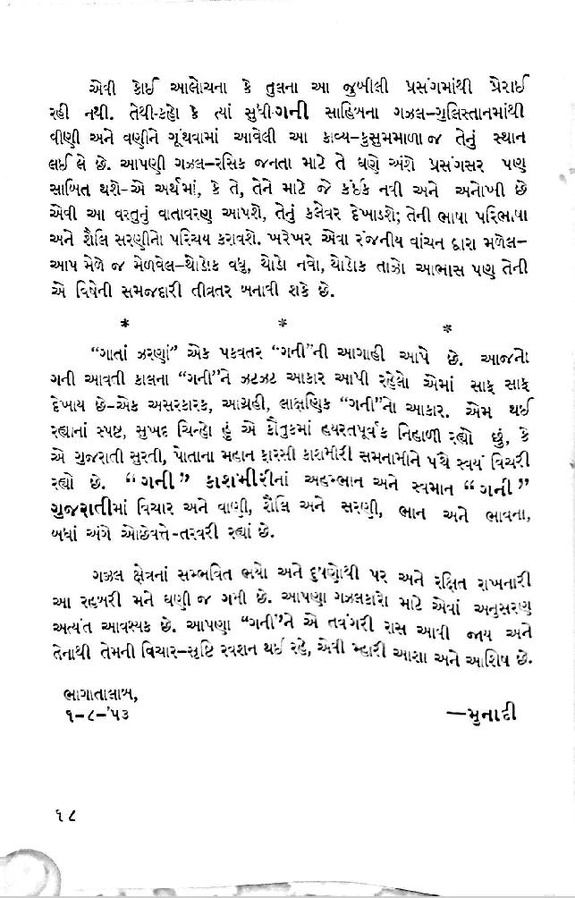 એવી કોઈ આલોચના કે તુલના આ જુબીલી પ્રસંગમાંથી પ્રેરાઈ
રહી નથી. તેથી-કહો કે ત્યાં સુધી-ગની સાહિત્રના ગઝલ-ગુલિસ્તાનમાંથી
વીણી અને વણીને ગૂંથવામાં આવેલી આ કાવ્ય-કુસુમમાળા જ તેનું સ્થાન
લઈ લે છે. આપણી ગઝલ-રસિક જનતા માટે તે ઘણે અંશે પ્રસંગસર પણ
સાબિત થશે-એ અર્થમાં, કે તે, તેને માટે જે કંઇક નવી અને અનોખી છે
એવી આ વસ્તુનું વાતાવરણ આપશે, તેનું કલેવર દેખાડશે; તેની ભાષા પરિભાષા
અને શૈલિ સરણીનો પરિચય કરાવશે. ખરેખર એવા રંજનીય વાંચન દ્વારા મળેલ-
આપ મેળે જ મેળવેલ-થોડોક વધુ, થોડો નવો, થોડોક તાઝો આભાસ પણ તેની
એ વિષેની સમજદારી તીવ્રતર બનાવી શકે છે.
* * *
“ગાતાં ઝરણાં” એક પકવતર “ગની”ની આગાહી આપે છે. આજનો
ગની આવતી કાલના “ગની”ને ઝટઝટ આકાર આપી રહેલો એમાં સાફ સાફ
દેખાય છે-એક અસરકારક, આગ્રહી, લાક્ષણિક “ગની”નો આકાર. એમ થઈ
રહ્યાનાં સ્પષ્ટ, સુખદ ચિન્હો હું એ કૌતુકમાં હયરતપૂર્વક નિહાળી રહ્યો છું, કે
એ ગુજરાતી સુરતી, પોતાના મહાન ફારસી કાશમીરી સમનામીને પંથે સ્વયં વિચરી
રહ્યો છે. “ગની” કાશમીરીનાં અહમ્ભાન અને સ્વમાન “ગની”
ગુજરાતીમાં વિચાર અને વાણી, શૈલિ અને સરણી, ભાન અને ભાવના,
બધાં અંગે ઓછેવત્તે-તરવરી રહ્યાં છે.
ગઝલ ક્ષેત્રનાં સમ્ભવિત ભયો અને દુષણોથી પર અને રક્ષિત રાખનારી
આ રાહબરી મને ઘણી જ ગમી છે. આપણા ગઝલકારો માટે એવાં અનુસરણ
અત્યંત આવશ્યક છે. આપણા “ગની”ને એ તવંગરી રાસ આવી જાય અને
તેનાથી તેમની વિચાર-સૃષ્ટિ રવશન થઈ રહે, એવી મ્હારી આશા અને આશિષ છે.
ભાગાતાલાબ,
૧-૮-'૫૩ —મુનાદી
૧૮